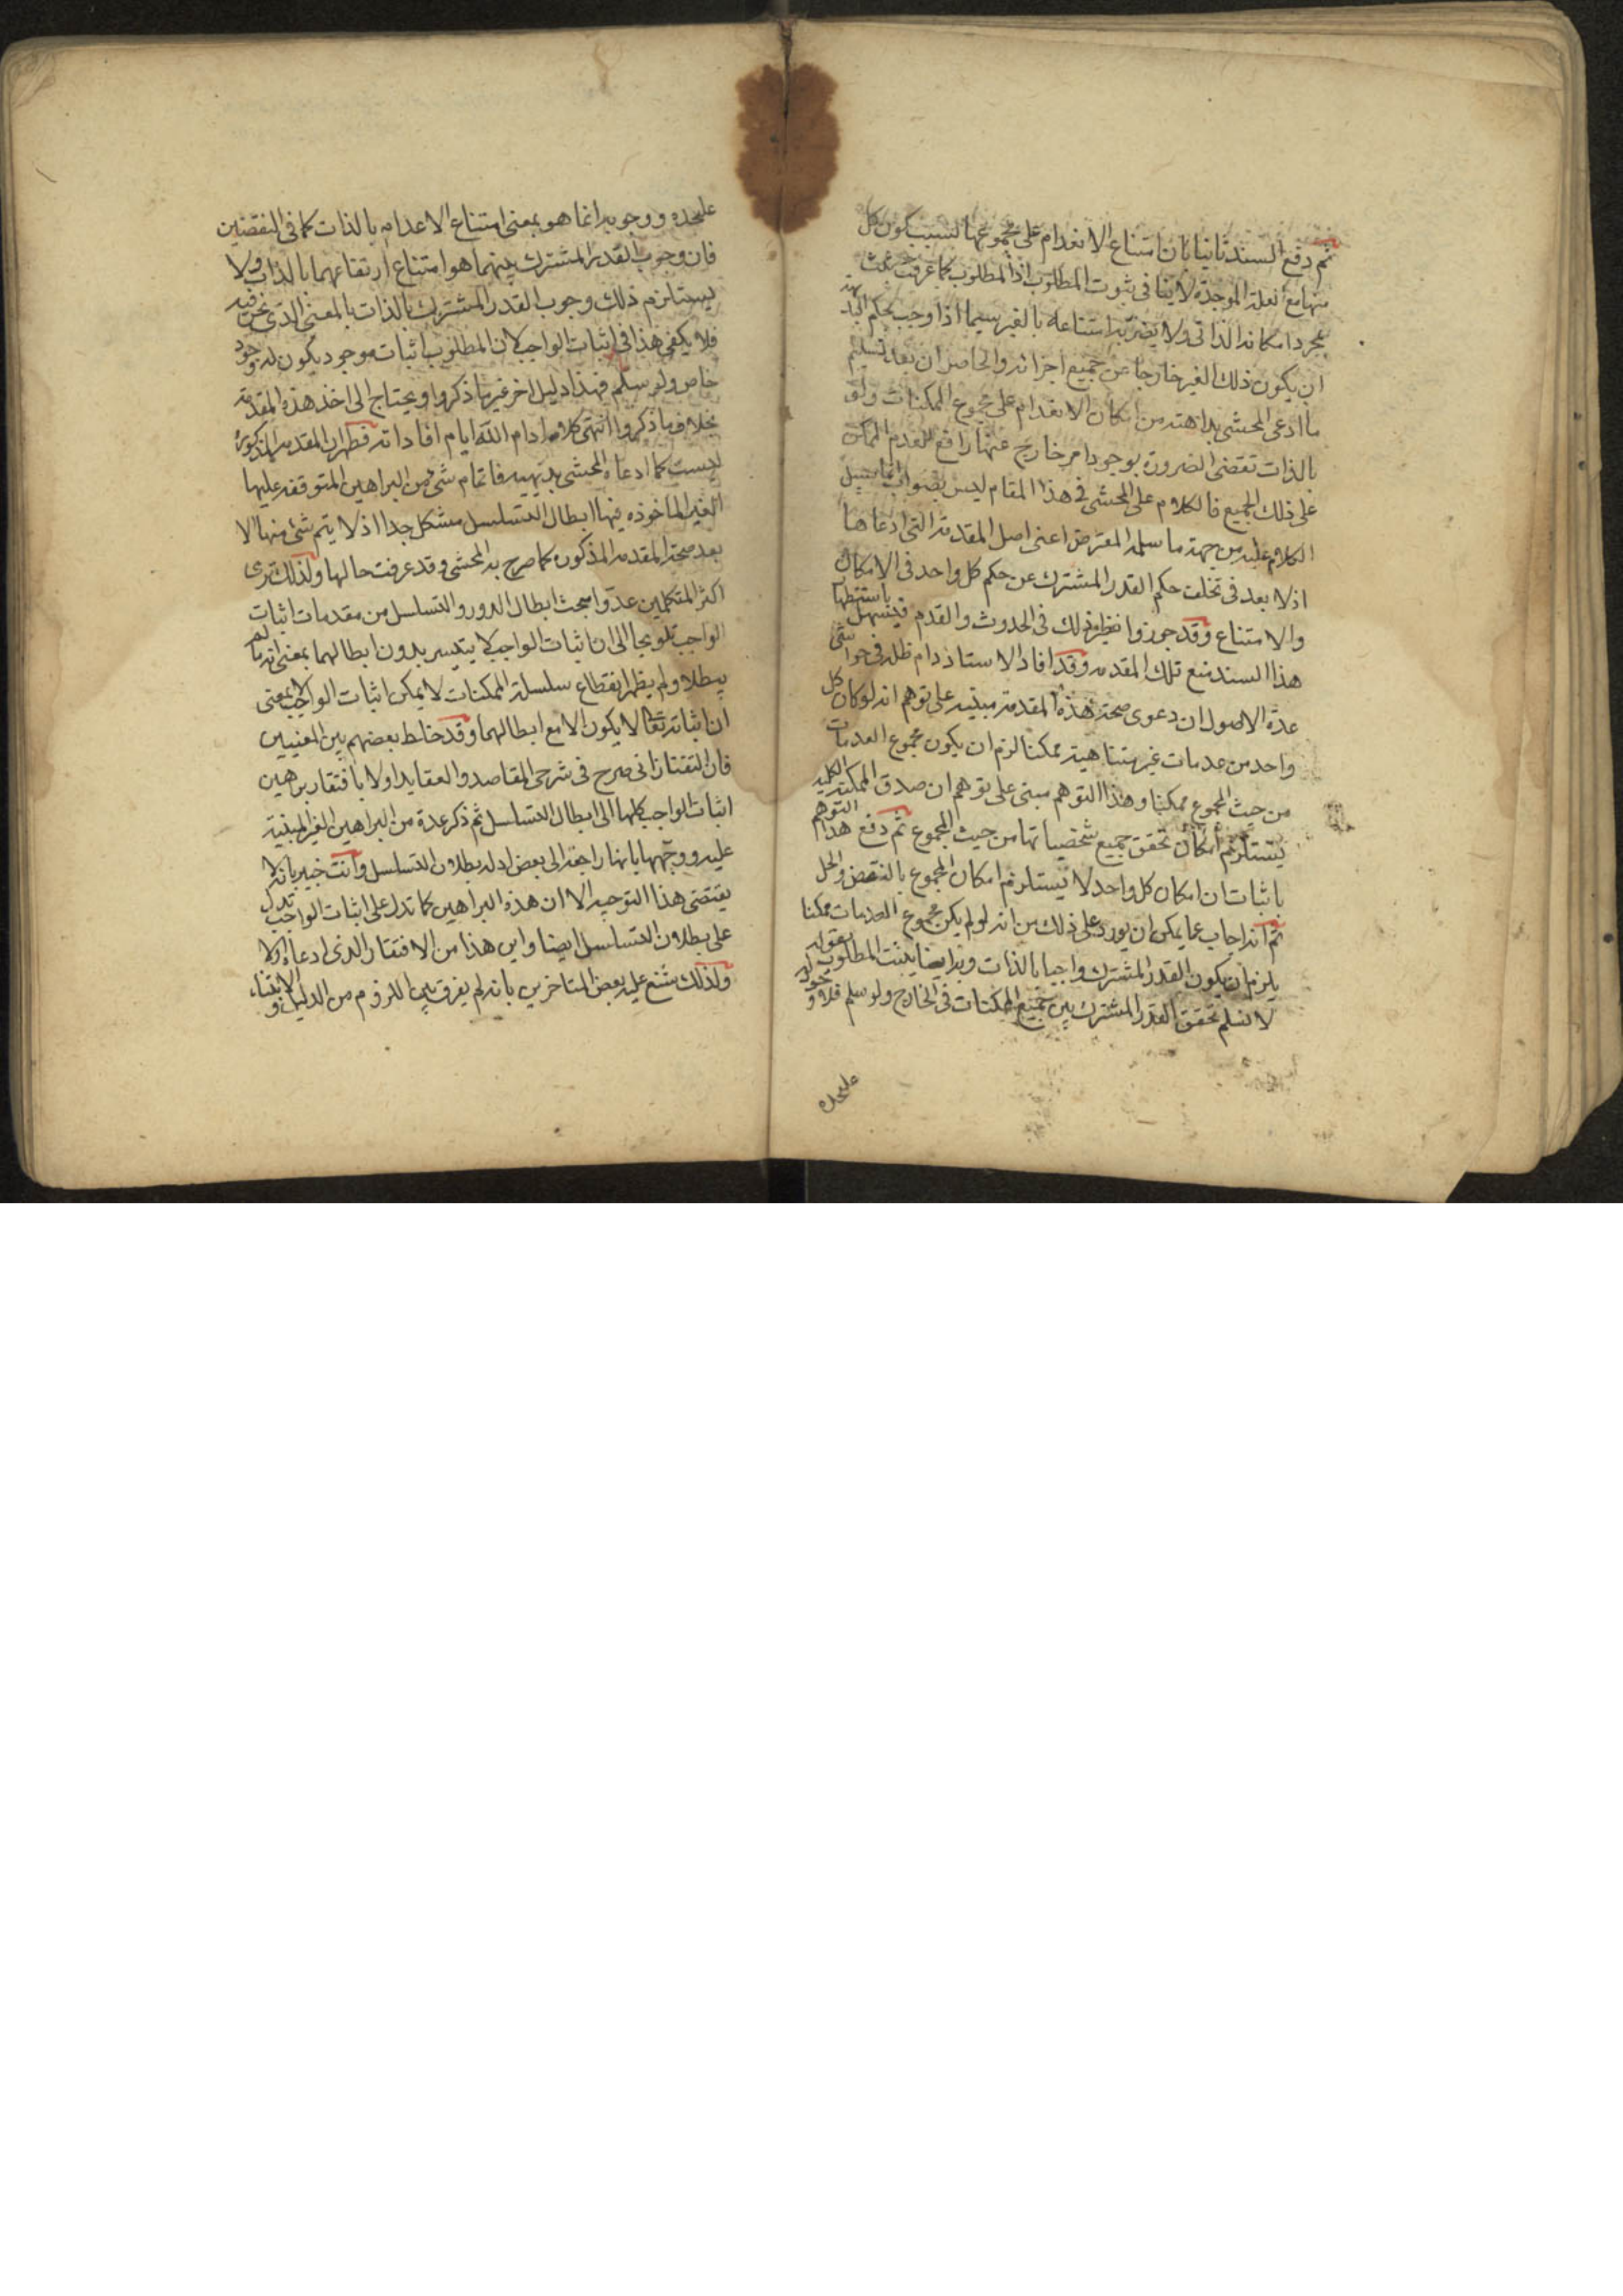 ثم دفع السند ثانيا بان امتناع الانعدام على مجموعها لسبب كون كل
منها مع العلة الموجدة لا ينافى ثبوت المطلوب اذ المطلوب كما عرفت يثبت
بمجرد امكانه الذاتى ولا يضر به امتناعه بالغير سيما اذا وجب بحكم البديهة
ان يكون ذلك الغير خارجا عن جميع اجزائه والحاصل ان بعد تسليم
ما ادعى المحشى بداهته من امكان الانعدام على مجموع الممكنات ولو
بالذات تقضى الضرورة بوجود امر خارج عنها رافع للعدم الممكن
على ذلك الجميع فالكلام على المحشى فى هذا المقام ليس بصواب انما سبيل
الكلام عليه من جهة ما سلمه المعترض اعنى اصل المقدمة التى ادعاها
اذ لا بعد فى تخلف حكم القدر المشترك عن حكم كل واحد فى الامكان
والامتناع وقد جوزوا نظير ذلك فى الحدوث والقدم فيسهل باستظهار
هذا السند منع تلك المقدمه وقد افاد الاستاذ دام ظله فى حواشى
عدة الاصول ان دعوى صحة هذه المقدمة مبتنيه على توهم انه لو كان كل
واحد من عدمات غير متناهية ممكنا لزم ان يكون مجموع العدمات
من حيث المجموع ممكنا وهذا التوهم مبنى على توهم ان صدق الممكنة الكليه
يستلزم امكان تحقق جميع شخصياتها من حيث المجموع ثم دفع هذا التوهم
باثبات ان امكان كل واحد لا يستلزم امكان المجموع بالنقض والحل
ثم انه اجاب عما يمكن ان يورد على ذلك من انه لو لم يكن مجموع العدمات ممكنا
يلزم ان يكون القدر المشترك واجبا بالذات وبه ايضا يثبت المطلوب بقوله
لا نسلم تحقق القدر المشترك بين جميع الممكنات فى الخارج ولو سلم فلا وجود له
عليحده
عليحده ووجوبه انما هو بمعنى امتناع الاعدام بالذات كما فى النقضين
فان وجوب القدر المشترك بينهما هو امتناع ارتفاعهما بالذات ولا
يستلزم ذلك وجوب القدر المشترك بالذات بالمعنى الذى نحن فيه
فلا يكفى هذا فى اثبات الواجب لان المطلوب اثبات موجود يكون له وجود
خاص ولو سلم فهذا دليل اخر غير ما ذكروا ويحتاج الى اخذ هذه المقدمة
بخلاف ما ذكروا انتهى كلامه ادام الله ايام افاداته فظهر ان المقدمه المذكورة
ليست كما ادعاه المحشى بديهيه فاتمام شئ من البراهين المتوقفه عليها
الغير الماخوذه فيها ابطال التسلسل مشكل جدا اذ لا يتم شئ منها الا
بعد صحة المقدمه المذكوره كما صرح به المحشى وقد عرفت حالها ولذلك ترى
اكثر المتكلمين عدوا مبحث ابطال الدور والتسلسل من مقدمات اثبات
الواجب تلويحا الى ان اثبات الواجب لا يتيسر بدون ابطالهما بمعنى انه ما لم
يبطلا ولم يظهر انقطاع سلسلة الممكنات لا يمكن اثبات الواجب لا بمعنى
ان اثباته تعالى لا يكون الا مع ابطالهما وقد خلط بعضهم بين المعنيين
فان التفتازانى صرح فى شرحى المقاصد والعقايد اولا بافتقار براهين
اثبات الواجب كلها الى ابطال التسلسل ثم ذكر عدة من البراهين الغير المبنية
عليه ووجهها بانها راجعه الى بعض ادله بطلان التسلسل وانت خبير بانه لا
يقتضى هذا التوجيه الا ان هذه البراهين كما تدل على اثبات الواجب تدل
على بطلان التسلسل ايضا واين هذا من الافتقار الذى ادعاه اولا
ولذلك شنع عليه بعض المتاخرين بانه لم يفرق بين اللزوم من الدليل والابتناء